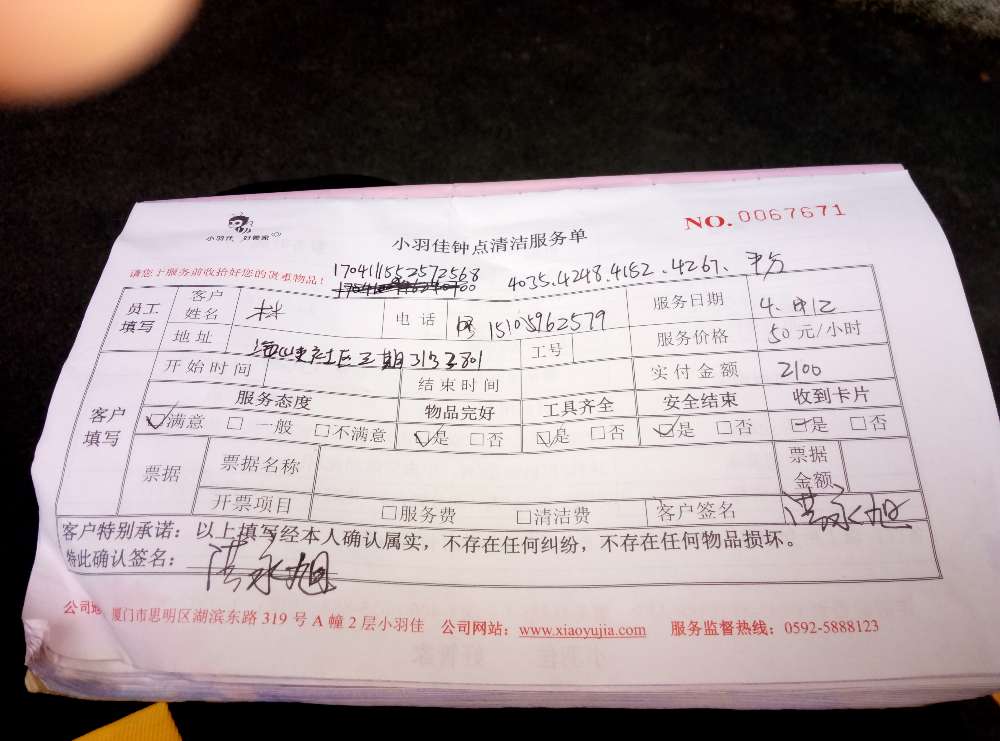 小羽佳 好管家
NO. 0067671
小羽佳钟点清洁服务单
请您于服务前收拾好您的贵重物品！ 170411152572568 4035.4248.4152.4267.
员工填写 客户姓名 林 电话 15105962579 服务日期 4.
地址 社区三期 工号 服务价格 50元/小时
客户填写 开始时间 结束时间 实付金额 2100
服务态度 物品完好 工具齐全 安全结束 收到卡片
☑满意 □一般 □不满意 ☑是 □否 ☑是 □否 ☑是 □否 ☑是 □否
票据 票据名称 票据金额
开票项目 □服务费 □清洁费 客户签名 洪永旭
客户特别承诺：以上填写经本人确认属实，不存在任何纠纷，不存在任何物品损坏。
特此确认签名： 洪永旭
公司地 厦门市思明区湖滨东路319号A幢2层小羽佳 公司网站：www.xiaoyujia.com 服务监督热线：0592-5888123